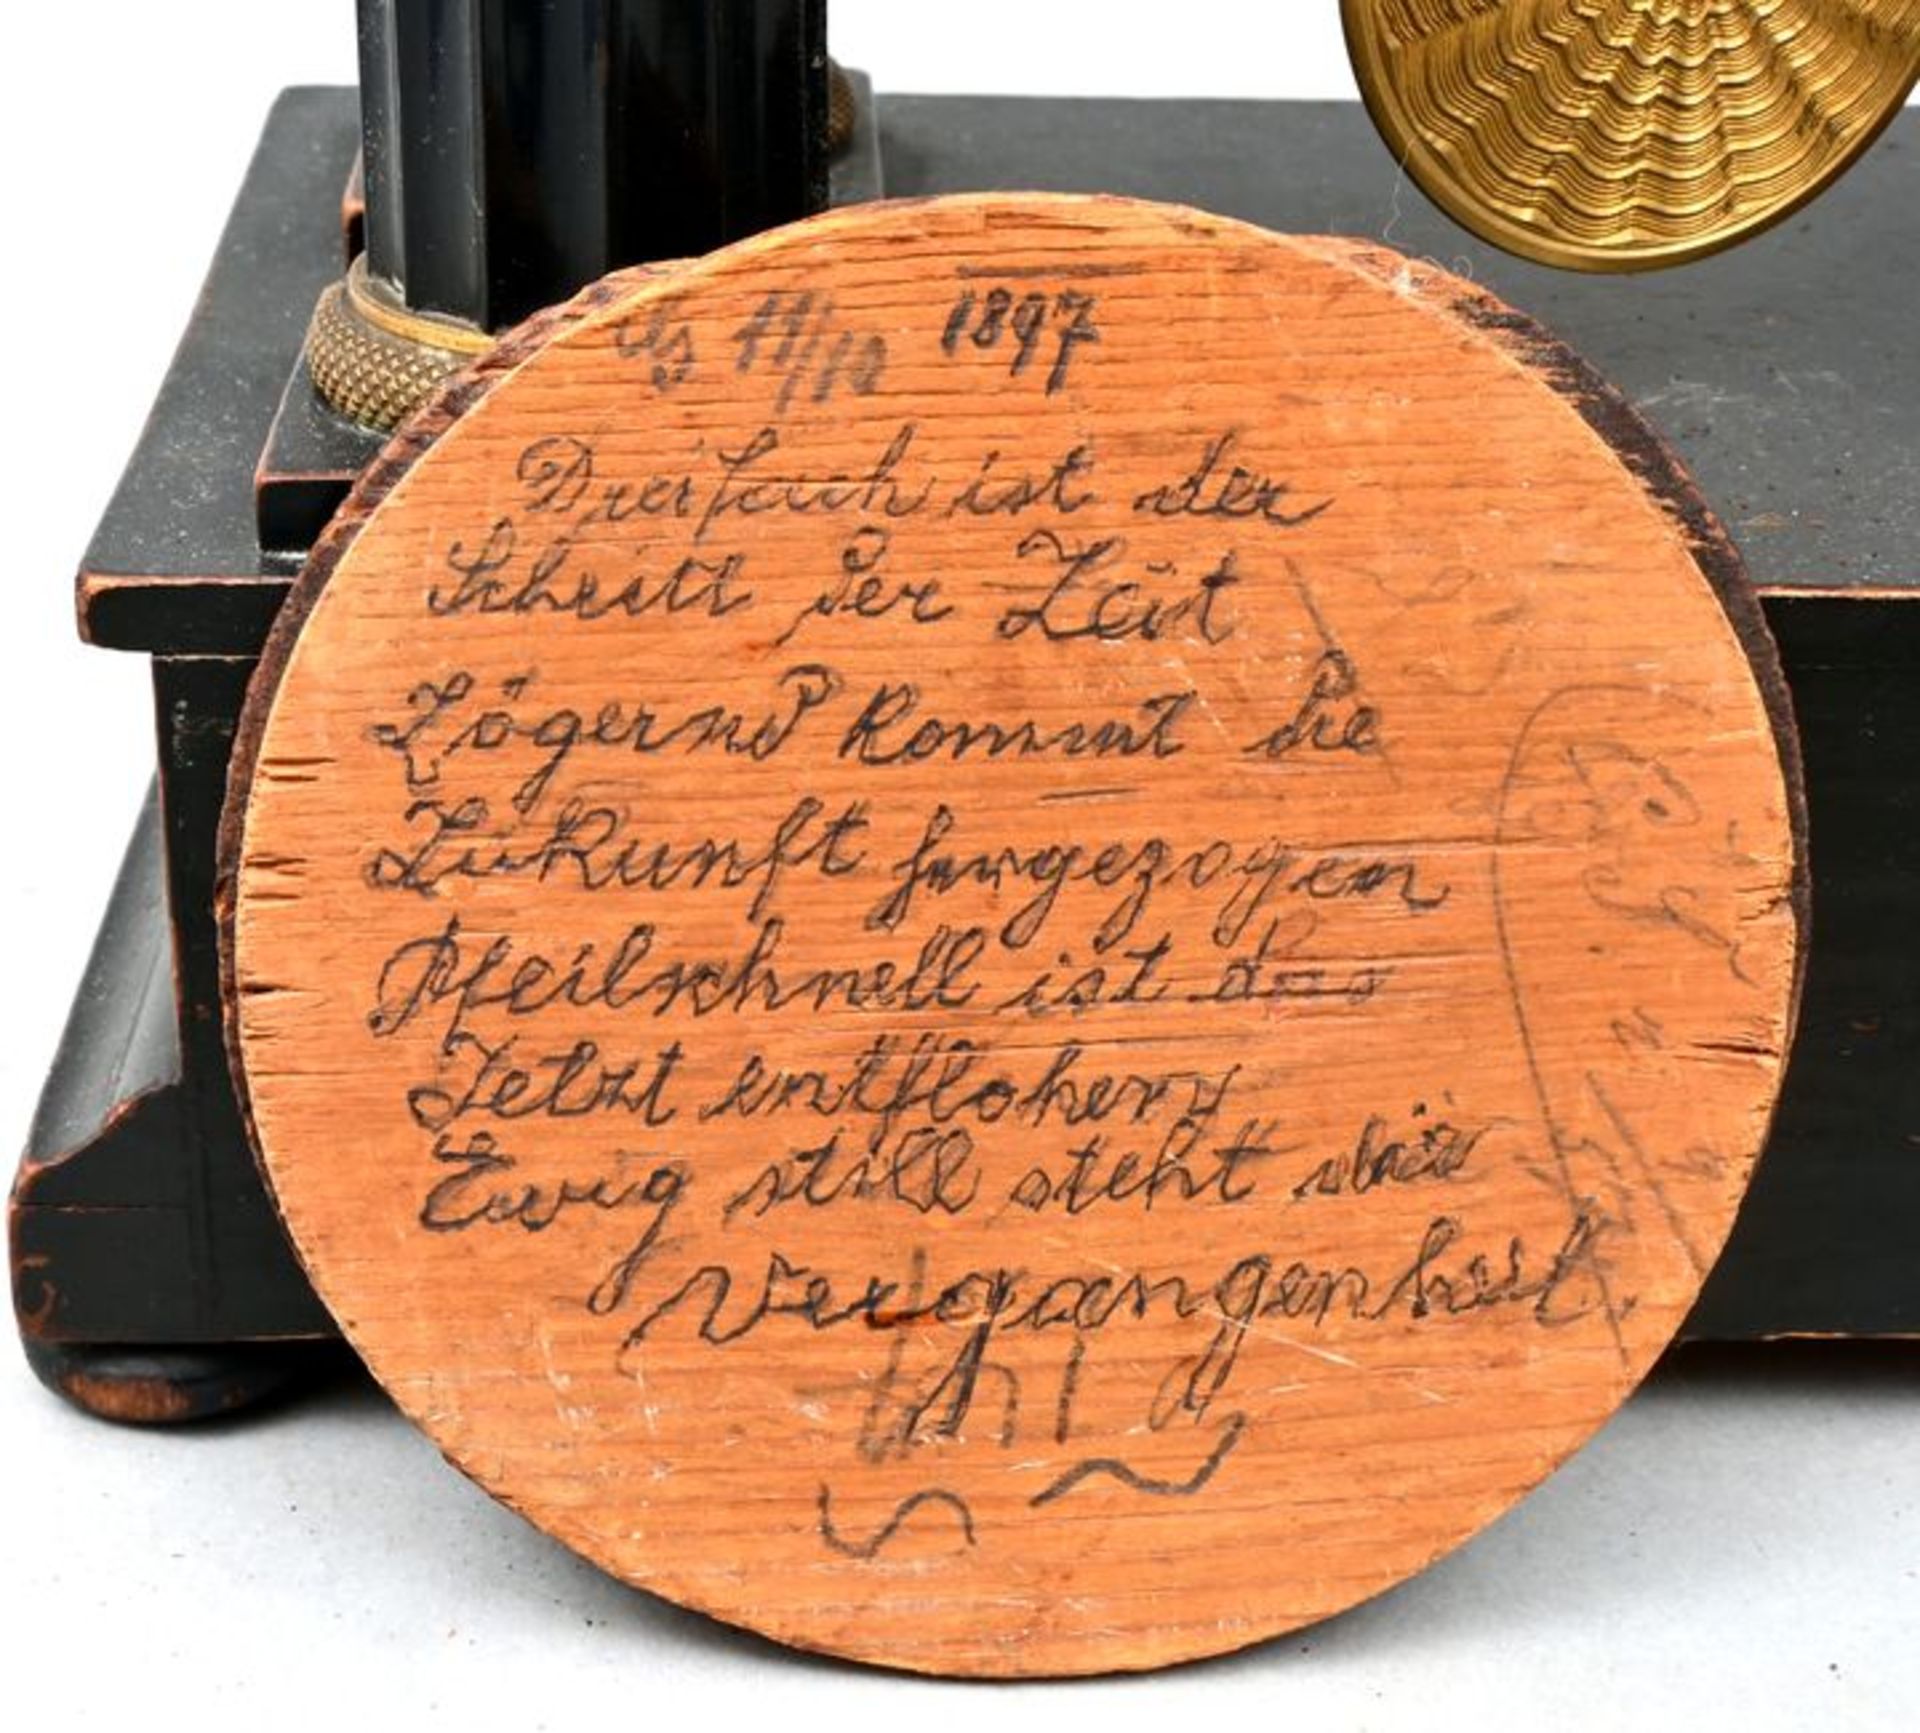 11/10 1897
Dreifach ist der
Schritt der Zeit
Zögernd kommt die
Zukunft hergezogen
Pfeilschnell ist das
Jetzt entflohen
Ewig still steht die
Vergangenheit.